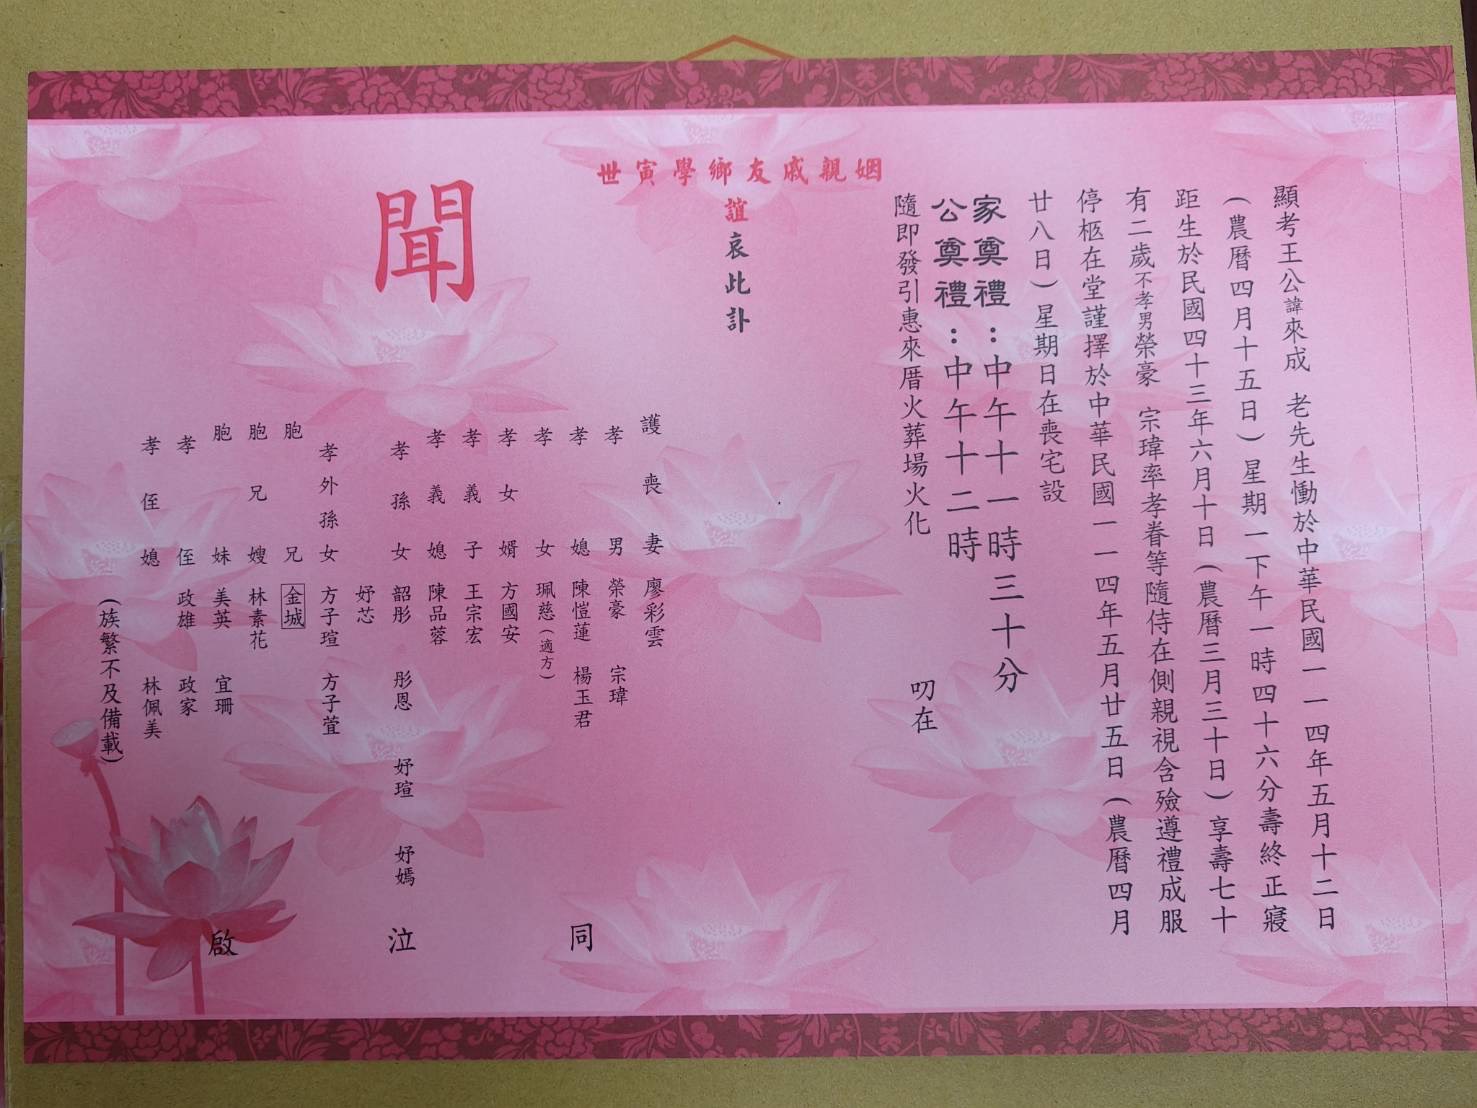 顯考王公諱來成 老先生慟於中華民國一一四年五月十二日
(農曆四月十五日)星期一下午一時四十六分壽終正寢
距生於民國四十三年六月十日(農曆三月三十日)享壽七十
有二歲不孝男榮豪 宗瑋率孝眷等隨侍在側親視含殮遵禮成服
停柩在堂謹擇於中華民國一一四年五月廿五日(農曆四月
廿八日)星期日在喪宅設
家奠禮：中午十一時三十分
公奠禮：中午十二時
隨即發引惠來厝火葬場火化 叨在
姻親戚友鄉學寅世
誼哀此訃
聞
護喪妻 廖彩雲
孝男 榮豪 宗瑋
孝媳 陳愷蓮 楊玉君
孝女 珮慈(適方)
孝女婿 方國安
孝義子 王宗宏
孝義媳 陳品蓉
孝孫女 韶彤 彤恩 妤瑄 妤嫣
妤芯
孝外孫女 方子瑄 方子萱
胞兄 金城
胞兄嫂 林素花
胞妹 美英 宜珊
孝侄 政雄 政家
孝侄媳 林佩美
(族繁不及備載)
同
泣
啟